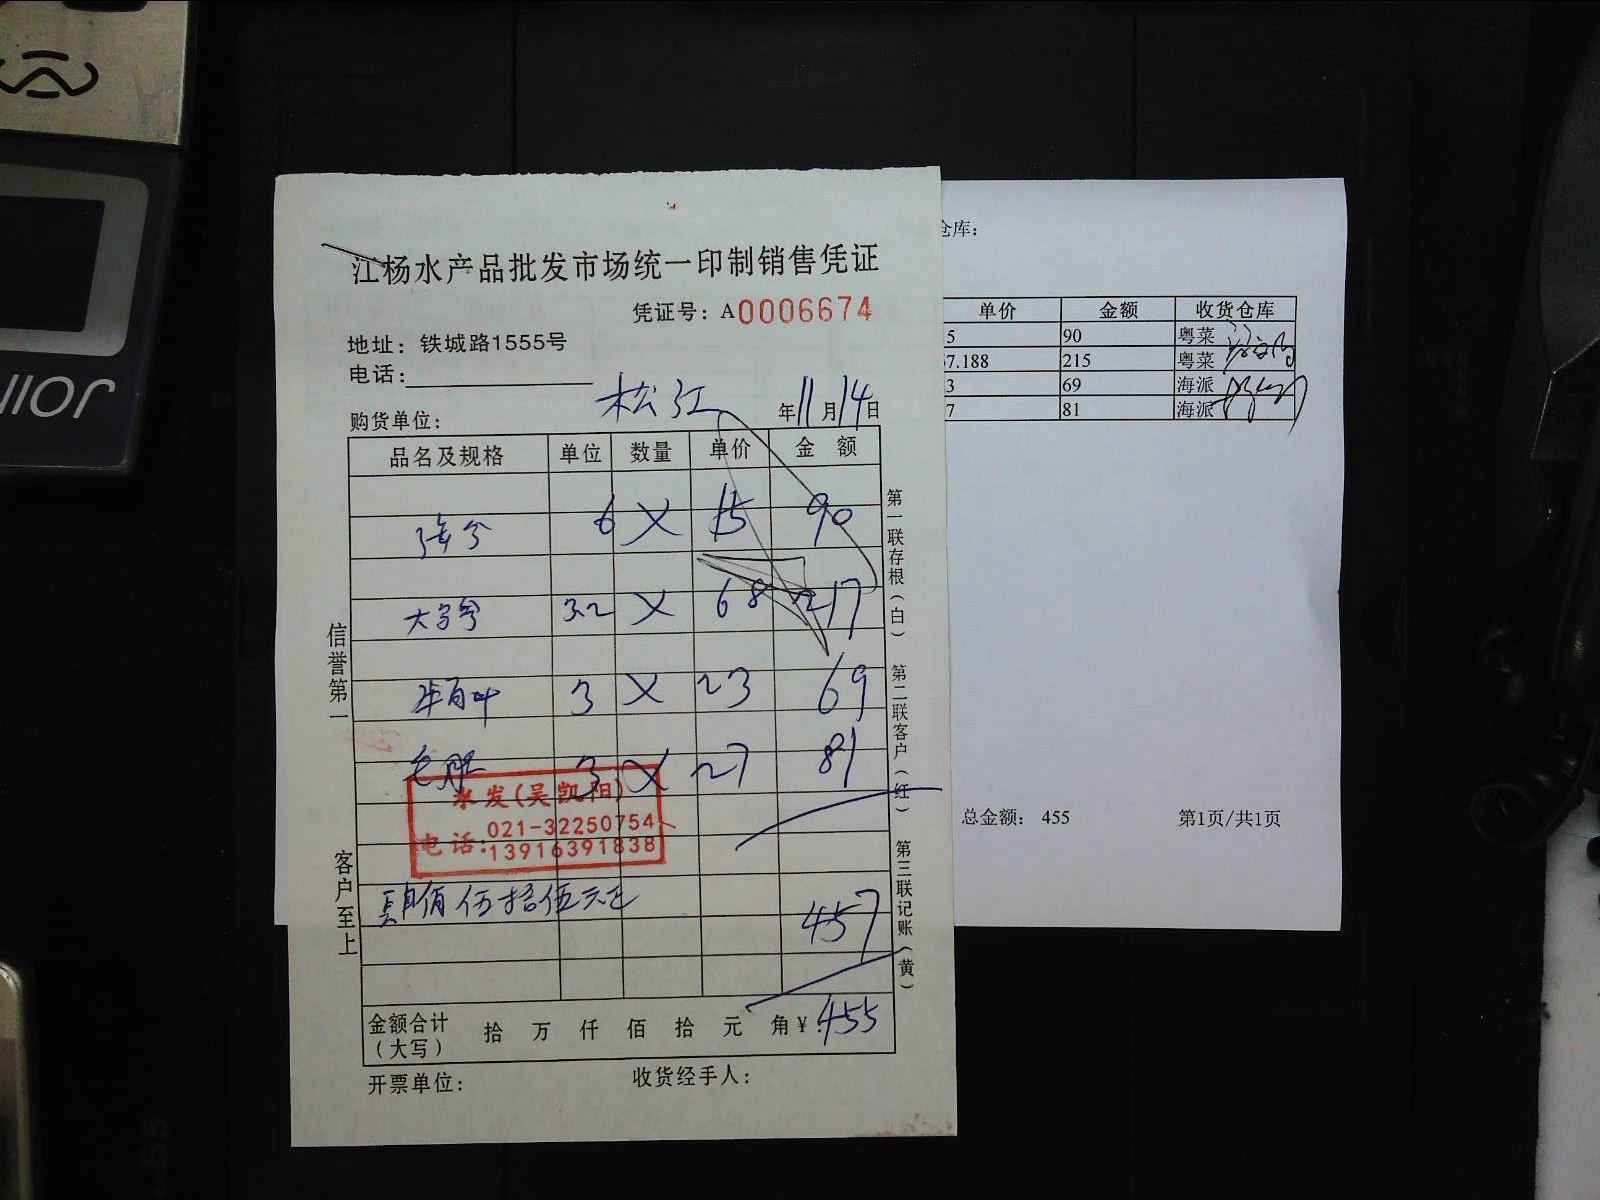 江杨水产品批发市场统一印制销售凭证
凭证号：A0006674
地址：铁城路1555号
电话：
购货单位： 松江 年11月14日
品名及规格 单位 数量 单价 金额
6 X 15 90
3.2 X 68 217
牛百叶 3 X 23 69
毛肚 3 X 27 81
永发(吴凯阳)
电话：021-32250754
13916391838
肆佰伍拾伍元正
457
金额合计（大写） 拾 万 仟 佰 拾 元 角 ¥：455
开票单位： 收货经手人：
信誉第一
客户至上
第一联存根（白）
第二联客户（红）
第三联记账（黄）
仓库：
单价 金额 收货仓库
5 90 粤菜
7.188 215 粤菜
3 69 海派
7 81 海派
总金额： 455 第1页/共1页
JOIII
B5